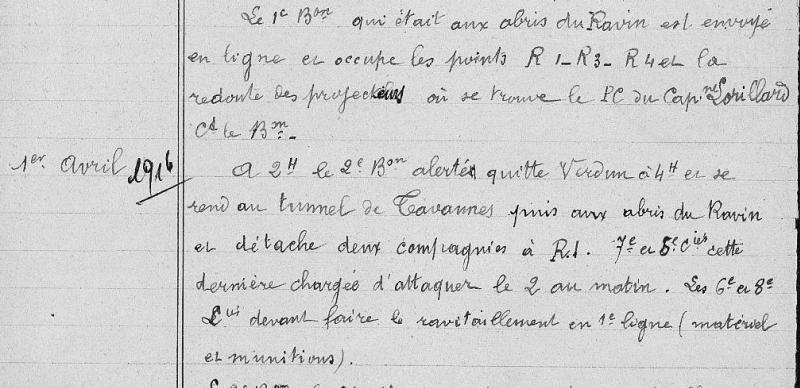 Le 1e Bon qui était aux abris du Ravin est envoyé
en ligne et occupe les points R 1_ R3_ R4 et la
redoute des projecteurs où se trouve le PC du Capne Lorillard
Ct le Bon_
1er Avril 1916
A 2H le 2e Bon alerté quitte Verdun à 4H et se
rend au tunnel de Tavannes puis aux abris du Ravin
et détache deux compagnies à R.1. 7e et 5e Cies cette
dernière chargée d'attaquer le 2 au matin. Les 6e et 8e
Cies devant faire le ravitaillement en 1e ligne (matériel
et munitions).